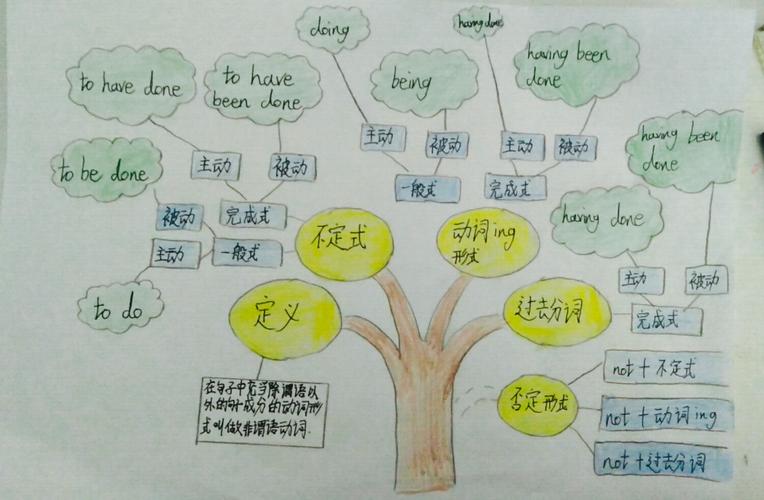 doing
having done
to have done
to have
been done
being
having been
done
主动
被动
主动
被动
having been
done
to be done
主动
被动
一般式
完成式
被动
完成式
不定式
动词ing
形式
having done
主动
一般式
主动
被动
to do
定义
过去分词
完成式
在句子中充当除谓语以
外的句子成分的动词形
式叫做非谓语动词.
否定形式
not+不定式
not+动词ing
not+过去分词